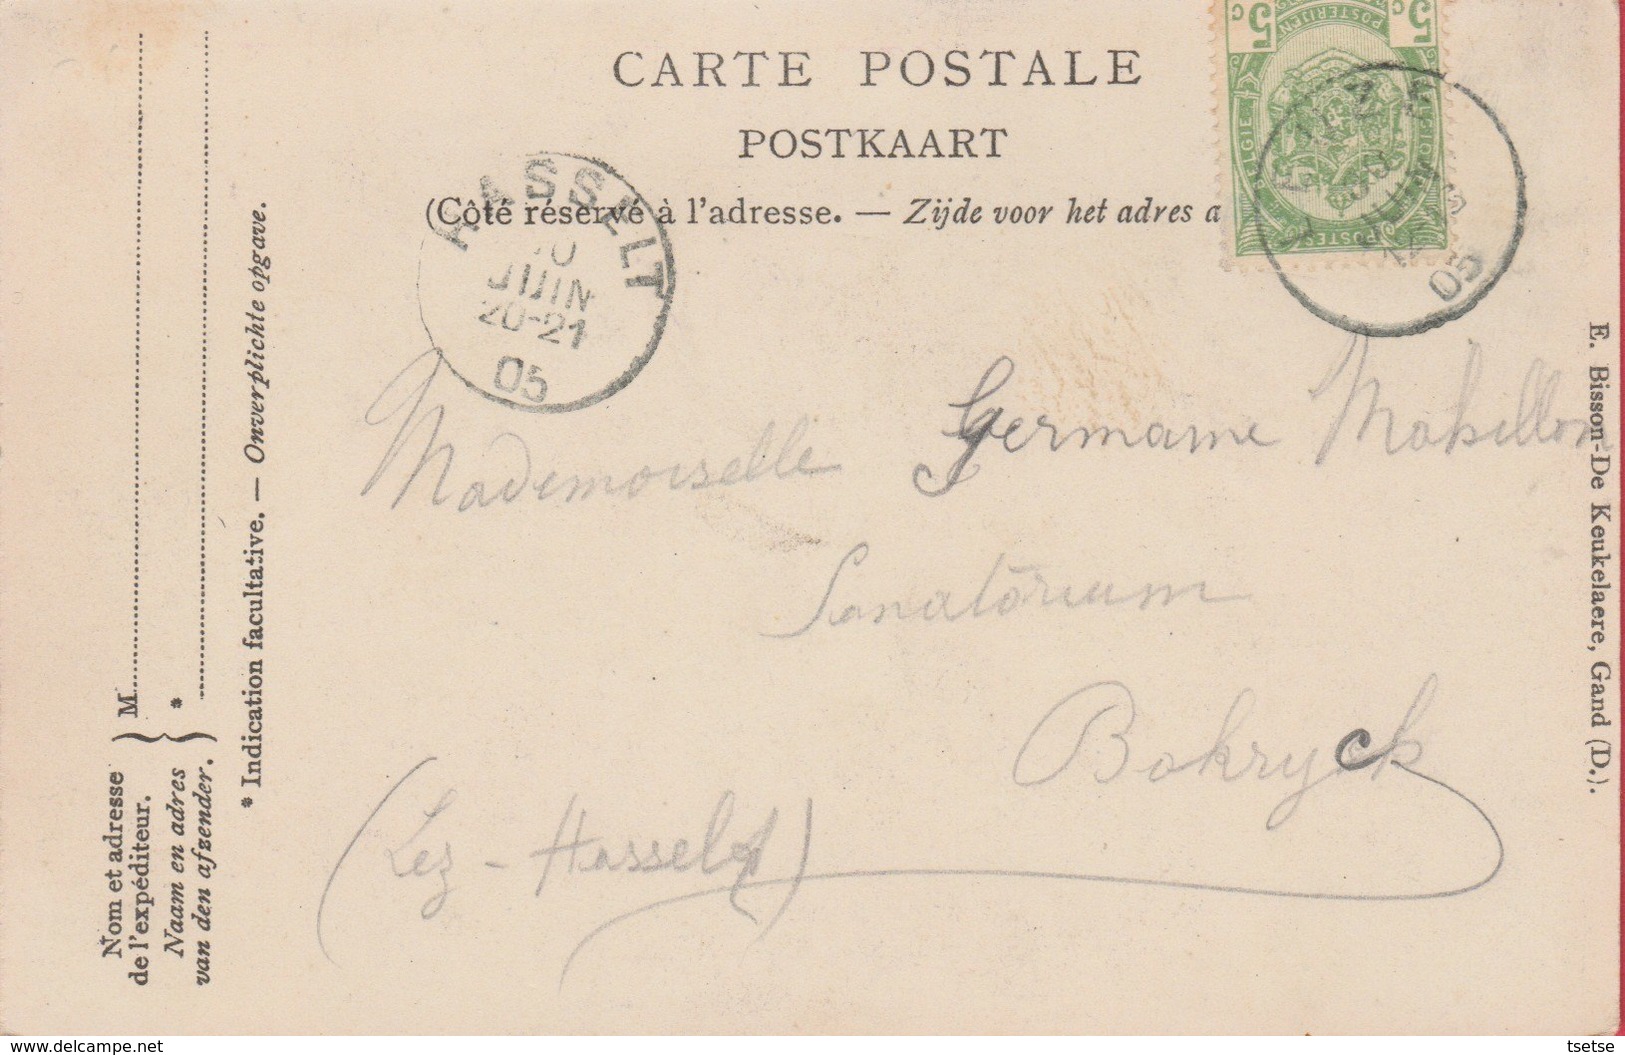 CARTE POSTALE
POSTKAART
(Côté réservé à l'adresse. — Zijde voor het adres a
5 c
5 c
POSTERIJEN
POSTES
HASSELT
10
JUIN
20-21
05
05
Mademoiselle Germaine Mahillon
Sanatorium
Bokryck
(Lez-Hasselt)
E. Bisson-De Keukelaere, Gand (D.).
* Indication facultative. — Onverplichte opgave.
M
*
Nom et adresse
de l'expéditeur.
Naam en adres
van den afzender.
delcampe.net
tsetse